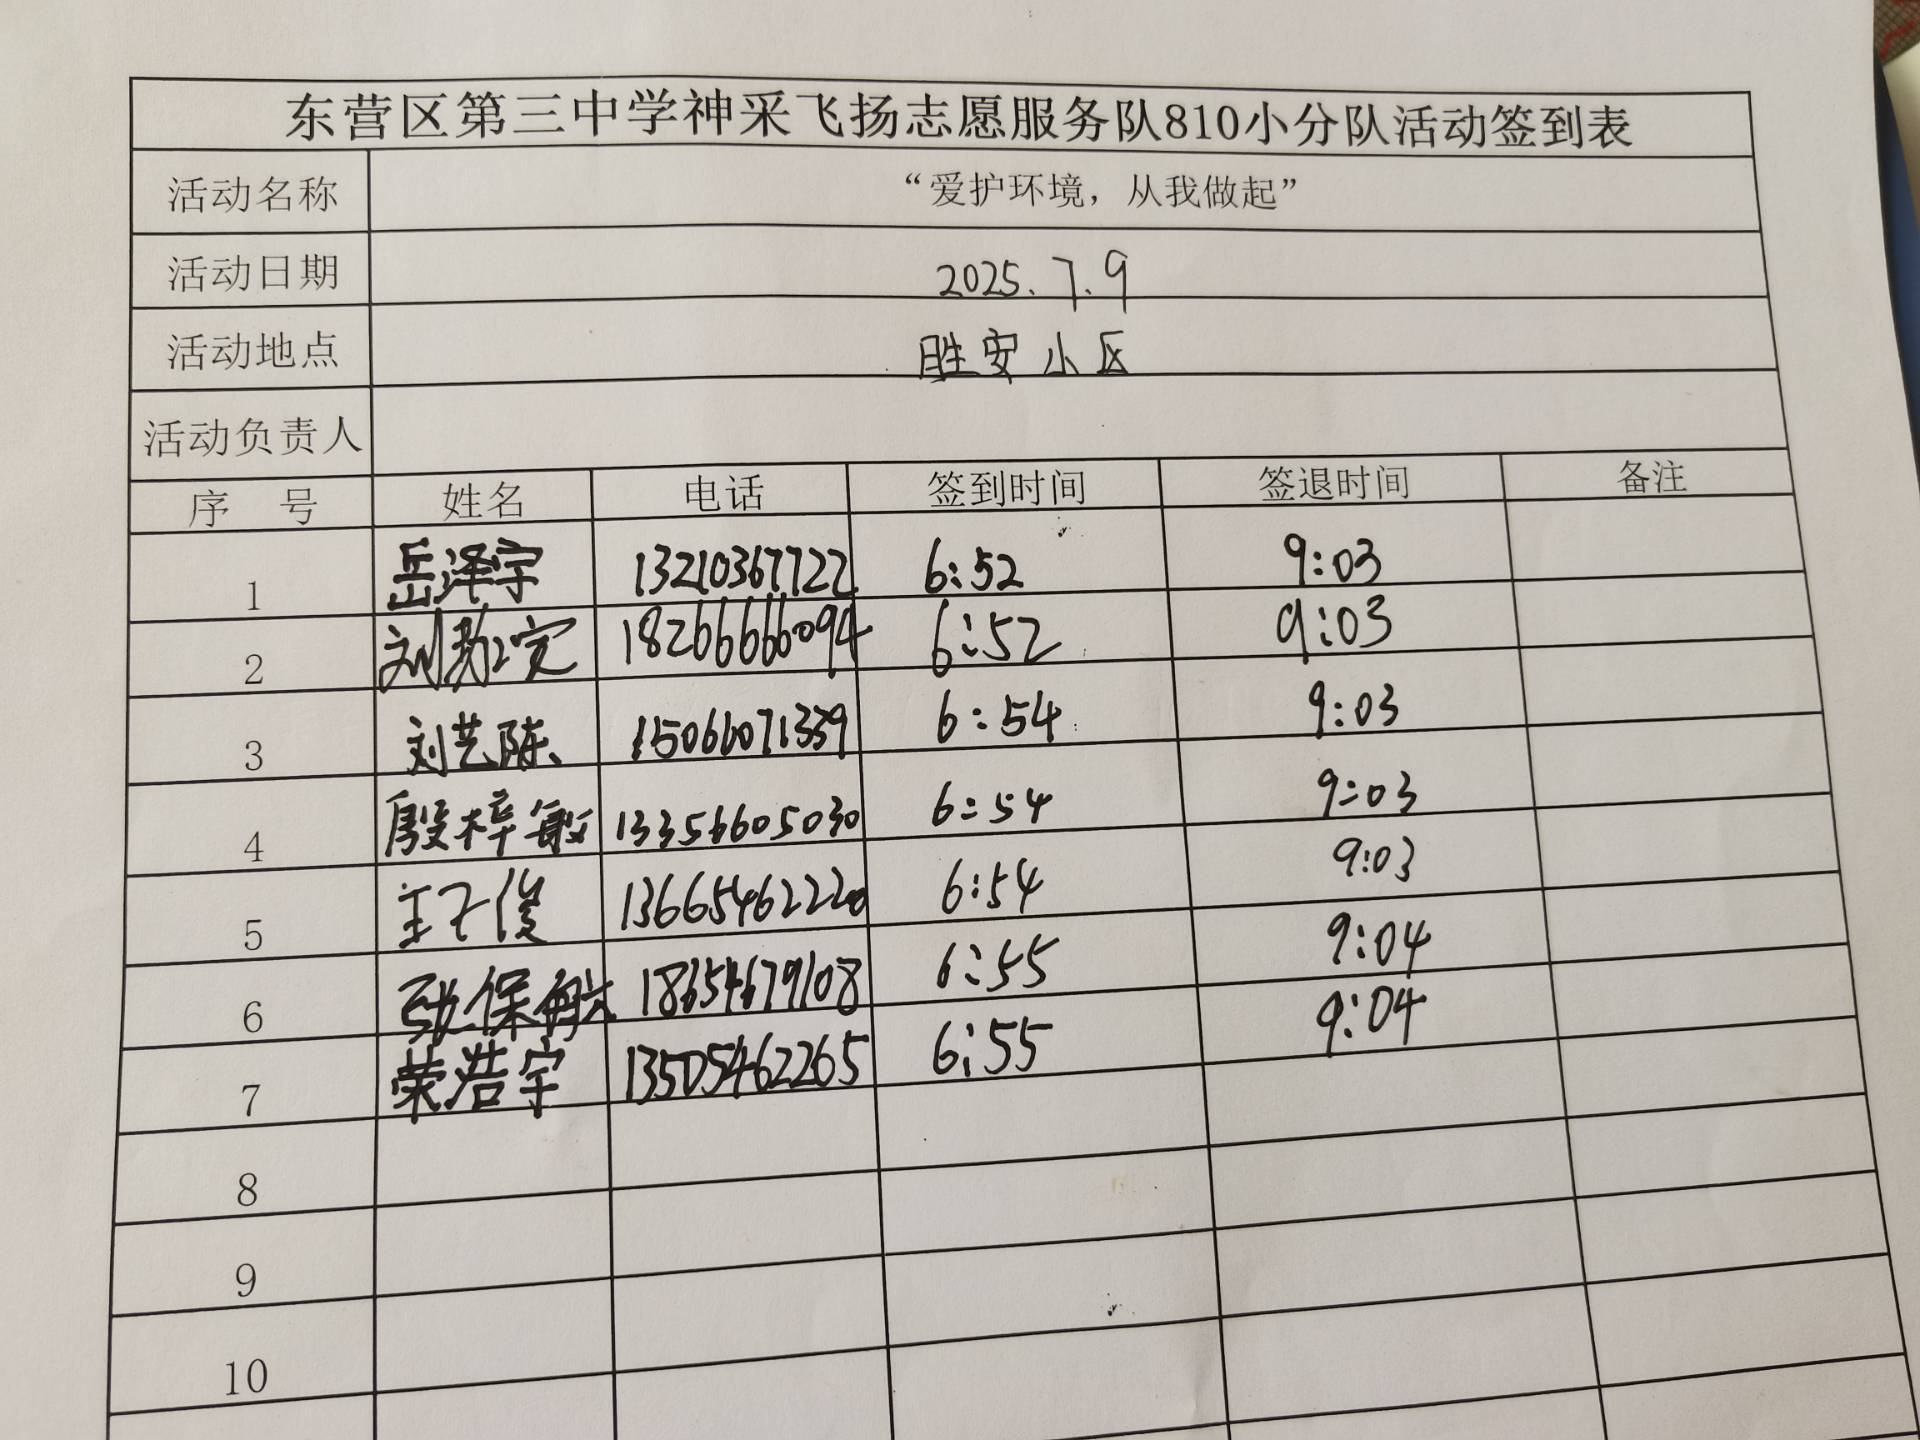 东营区第三中学神采飞扬志愿服务队810小分队活动签到表
活动名称 “爱护环境，从我做起”
活动日期 2025.7.9
活动地点 胜安小区
活动负责人
序 号 姓名 电话 签到时间 签退时间 备注
1 岳泽宇 13210367722 6:52 9:03
2 刘 18266666094 6:52 9:03
3 刘艺陈 15066071339 6:54 9:03
4 殷梓敏 13356605030 6:54 9:03
5 王子俊 13665462220 6:54 9:03
6 张保航 18654679108 6:55 9:04
7 荣浩宇 13505462265 6:55 9:04
8
9
10